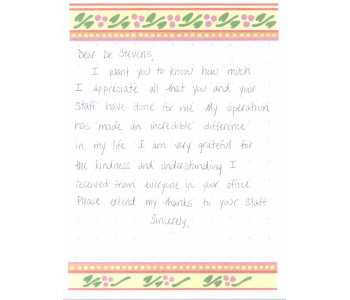 Dear Dr Stevens,
I want you to know how much
I appreciate all that you and your
Staff have done for me. My operation
has made an incredible difference
in my life. I am very grateful for
the kindness and understanding I
received from everyone in your office.
Please extend my thanks to your Staff.
Sincerely,